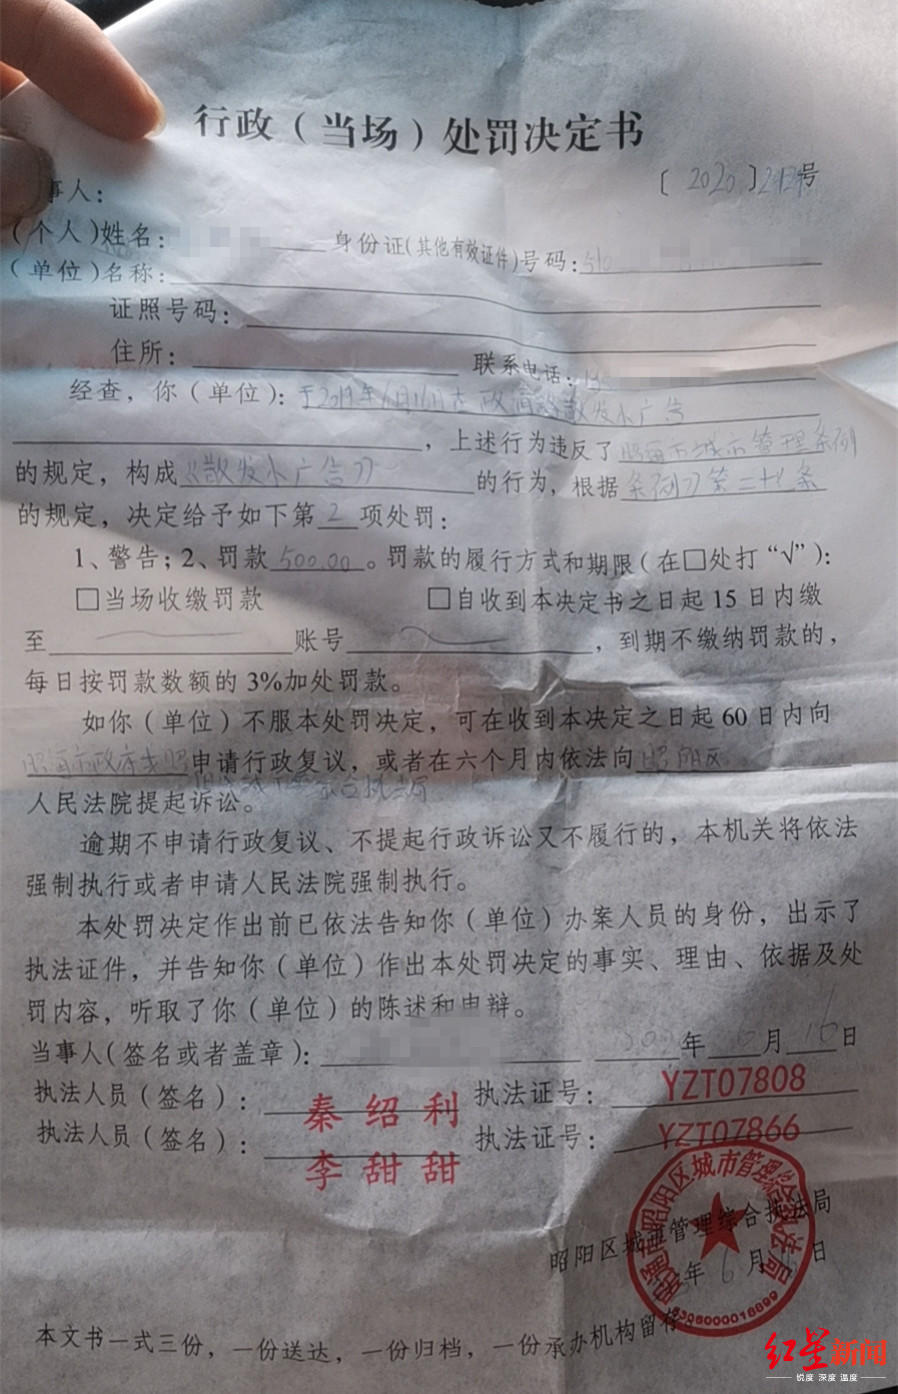 行政（当场）处罚决定书
〔2020〕号
事人：
（个人）姓名： 身份证（其他有效证件）号码：510
（单位）名称：
证照号码：
住所： 联系电话：
经查，你（单位）：于2019年6月16日在 散发小广告
，上述行为违反了 昭通市城市管理条例
的规定，构成《散发小广告》的行为，根据 条例》第二十七条
的规定，决定给予如下第2项处罚：
1、警告；2、罚款500.00。罚款的履行方式和期限（在□处打“√”）：
□当场收缴罚款 □自收到本决定书之日起15日内缴
至 账号 ，到期不缴纳罚款的，
每日按罚款数额的3%加处罚款。
如你（单位）不服本处罚决定，可在收到本决定之日起60日内向
申请行政复议，或者在六个月内依法向昭阳区
人民法院提起诉讼。
逾期不申请行政复议、不提起行政诉讼又不履行的，本机关将依法
强制执行或者申请人民法院强制执行。
本处罚决定作出前已依法告知你（单位）办案人员的身份，出示了
执法证件，并告知你（单位）作出本处罚决定的事实、理由、依据及处
罚内容，听取了你（单位）的陈述和申辩。
当事人（签名或者盖章）： 年 月16日
执法人员（签名）：秦绍利 执法证号：YZT07808
执法人员（签名）：李甜甜 执法证号：YZT07866
昭通市昭阳区城市管理综合执法局
昭阳区城市管理综合执法局
年6月 日
5306000018899
本文书一式三份，一份送达，一份归档，一份承办机构留存
红星新闻
锐度 深度 温度